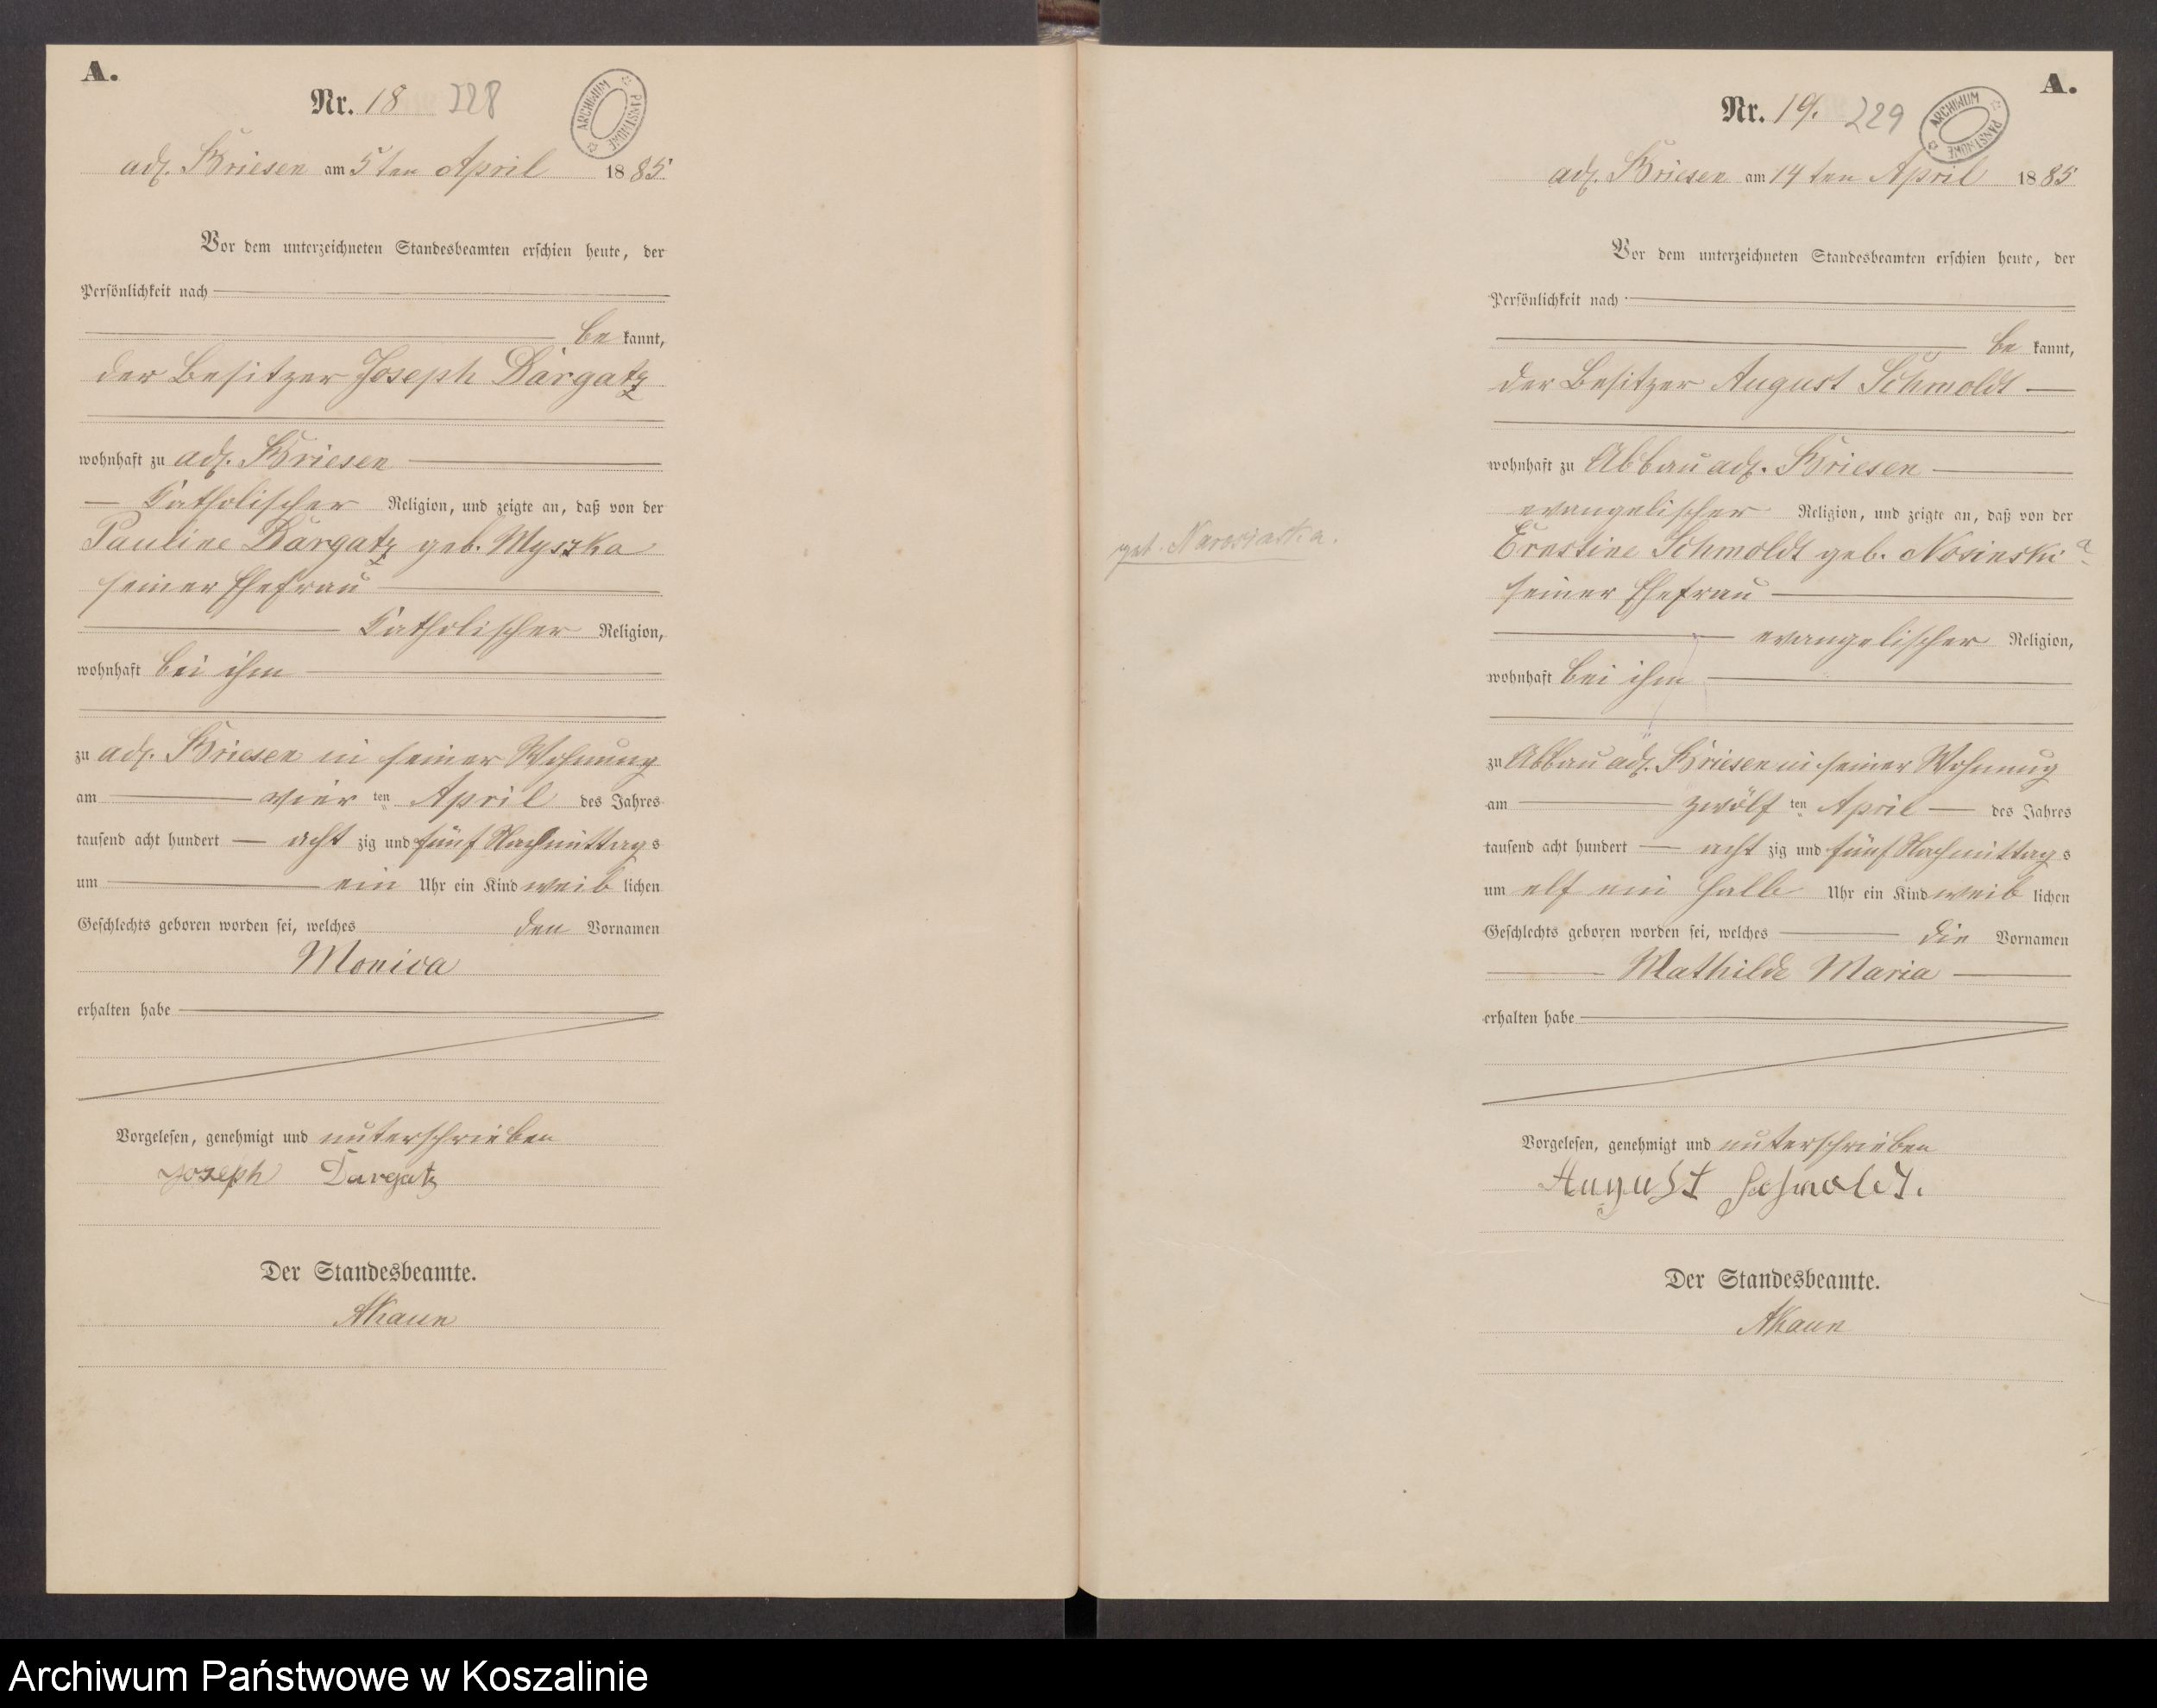 A.
Nr. 18 228
ARCHIWUM PAŃSTWOWE
adl. Briesen am 5ten April 1885
Vor dem unterzeichneten Standesbeamten erschien heute, der
Persönlichkeit nach
be kannt,
der Besitzer Joseph Dargatz
wohnhaft zu adl. Briesen
katholischer Religion, und zeigte an, daß von der
Pauline Dargatz geb. Myszka
seiner Ehefrau
katholischer Religion,
wohnhaft bei ihm
zu adl. Briesen in seiner Wohnung
am vier ten April des Jahres
tausend acht hundert acht zig und fünf Nachmittags
um ein Uhr ein Kind weib lichen
Geschlechts geboren worden sei, welches den Vornamen
Monica
erhalten habe
Vorgelesen, genehmigt und unterschrieben
Joseph Dargatz
Der Standesbeamte.
A.
Nr. 19. 229
ARCHIWUM PAŃSTWOWE
adl. Briesen am 14ten April 1885
Vor dem unterzeichneten Standesbeamten erschien heute, der
Persönlichkeit nach
be kannt,
der Besitzer August Schmoldt
wohnhaft zu Abbau adl. Briesen
evangelischer Religion, und zeigte an, daß von der
geb.
Ernestine Schmoldt geb. Nosinski
seiner Ehefrau
evangelischer Religion,
wohnhaft bei ihm
zu Abbau adl. Briesen in seiner Wohnung
am zwölf ten April des Jahres
tausend acht hundert acht zig und fünf Nachmittags
um elf ein halb Uhr ein Kind weib lichen
Geschlechts geboren worden sei, welches die Vornamen
Mathilde Maria
erhalten habe
Vorgelesen, genehmigt und unterschrieben
August Schmoldt.
Der Standesbeamte.
Archiwum Państwowe w Koszalinie